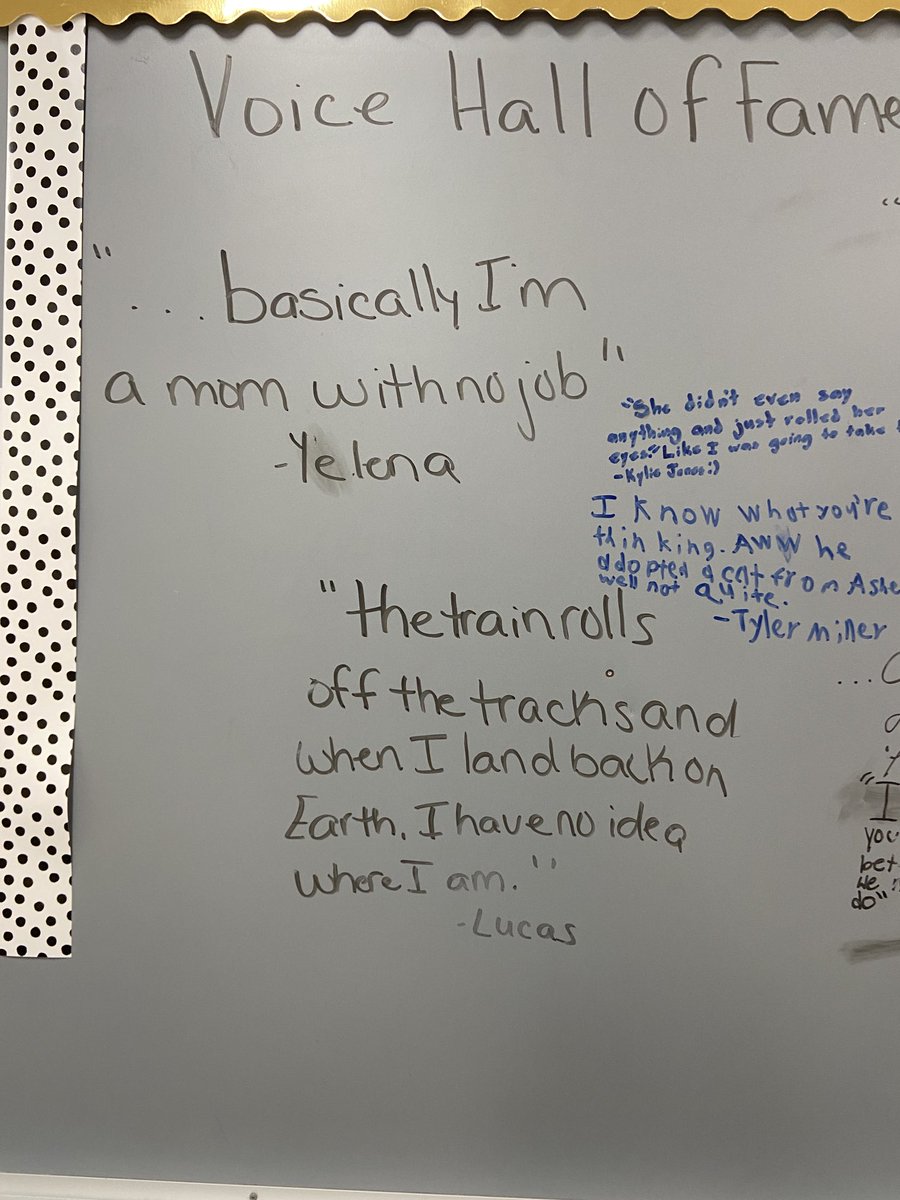 Voice Hall of Fame
"
...basically I'm
a mom with no job"
-Yelena
"She didn't even say
anything and just rolled her
eyes." Like I was going to take
-Kylie Jones:)
I know what you're
thinking. AWW he
adopted a cat from Ashe
well not quite.
-Tyler Miller
"the train rolls
off the tracks and
when I land back on
Earth, I have no idea
where I am."
-Lucas
...
"I
you
bet
we
do"